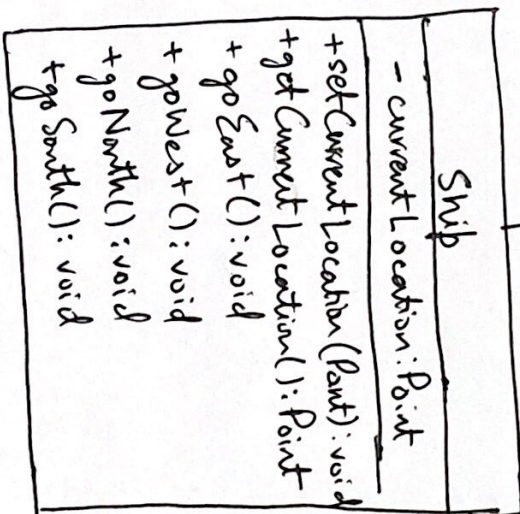 Ship
- currentLocation: Point
+ setCurrentLocation (Point): void
+ getCurrentLocation(): Point
+ goEast(): void
+ goWest(): void
+ goNorth(): void
+ goSouth(): void